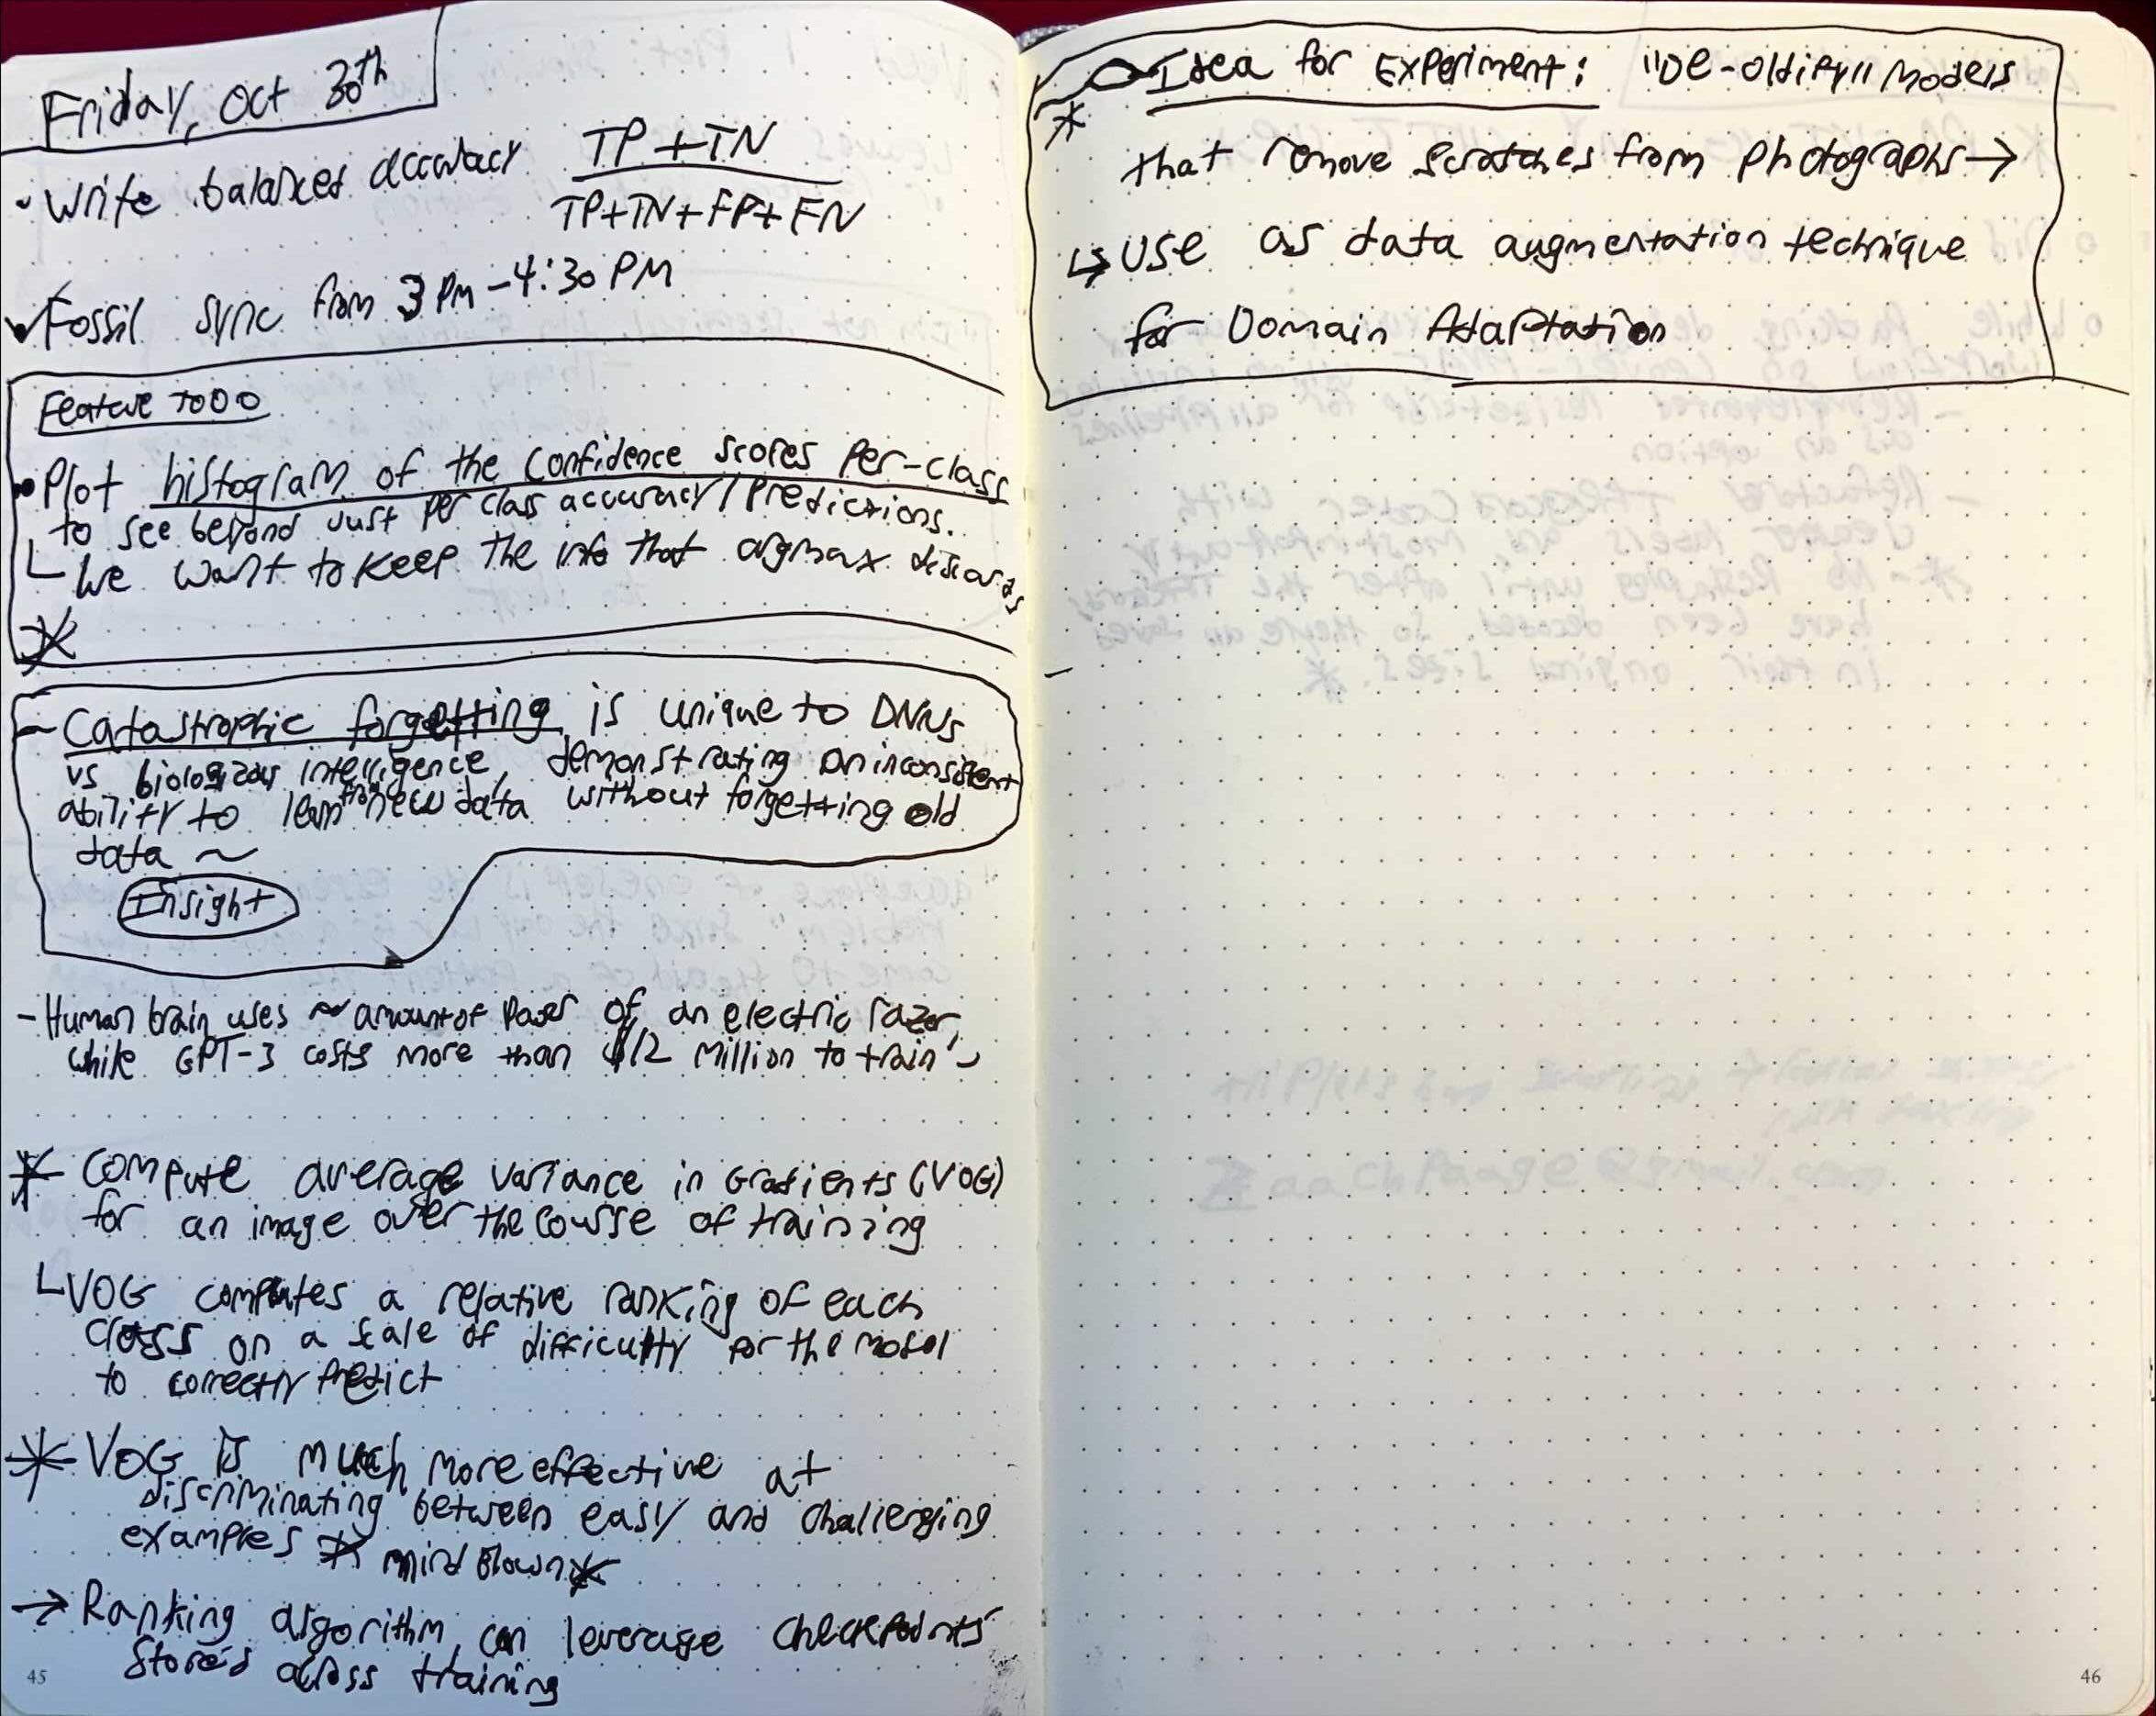 Friday, Oct 30th
- Write balanced accuracy TP+TN
TP+TN+FP+FN
Fossil sync from 3 PM-4:30 PM
Feature TODO
• Plot histogram of the confidence scores per-class
to see beyond just per class accuracy/predictions.
We want to keep the info that argmax discards
~ Catastrophic forgetting is unique to DNNs
vs. biological intelligence, demonstrating an inconsistent
ability to learn from new data without forgetting old
data ~
Insight
- Human brain uses ~ amount of power of an electric razor,
while GPT-3 costs more than $12 million to train
* Compute average variance in Gradients (VOG)
for an image over the course of training
VOG computes a relative ranking of each
class on a scale of difficulty for the model
to correctly predict
* VOG is much more effective at
discriminating between easy and challenging
examples * mind blown *
→ Ranking algorithm can leverage checkpoints
stored across training
45
Idea for Experiment: "De-oldify" Models
* that remove scratches from photographs →
↳ Use as data augmentation technique
for Domain Adaptation
46